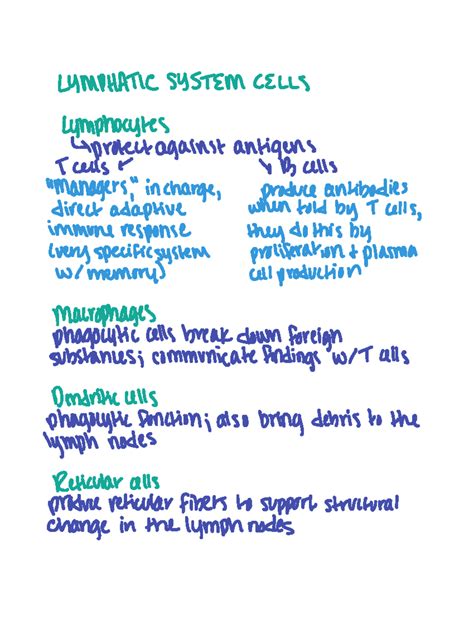 LYMPHATIC SYSTEM CELLS
Lymphocytes
↳ protect against antigens
T cells
"managers," in charge,
direct adaptive
immune response
(very specific system
w/ memory)
B cells
produce antibodies
when told by T cells,
they do this by
proliferation + plasma
cell production
Macrophages
phagocytic cells break down foreign
substances; communicate findings w/ T cells
Dendritic cells
phagocytic function; also bring debris to the
lymph nodes
Reticular cells
produce reticular fibers to support structural
change in the lymph nodes